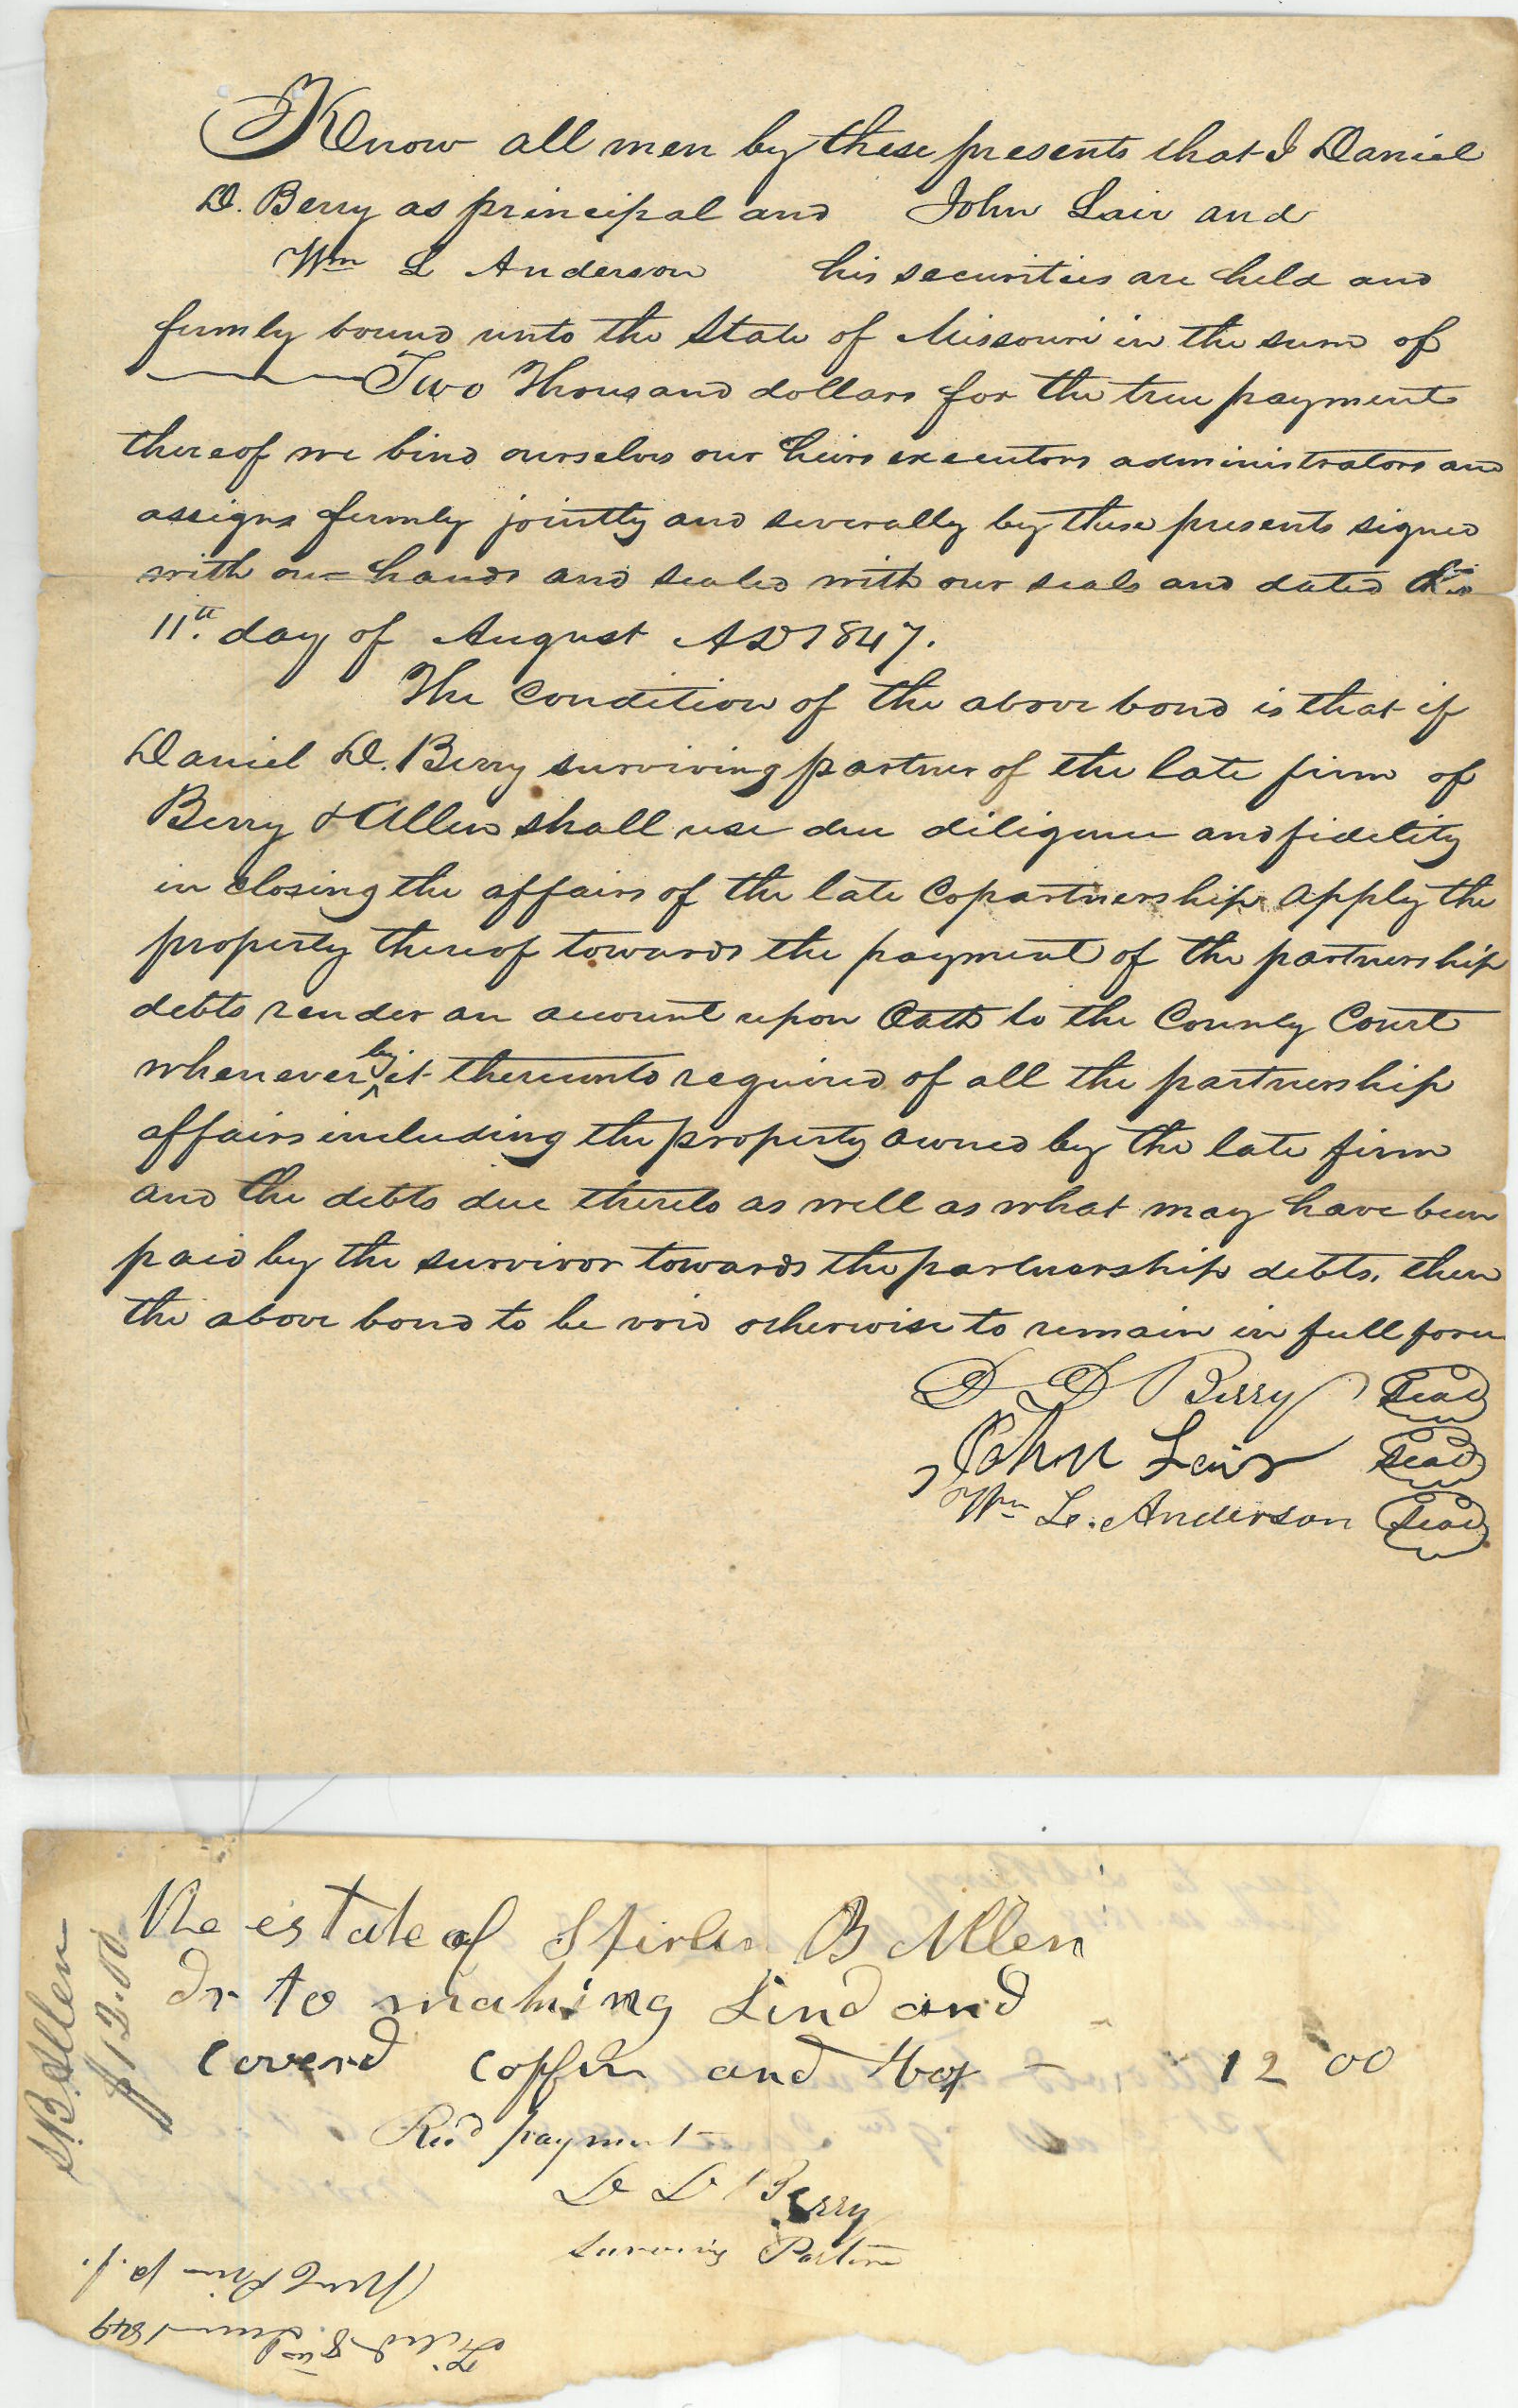 Know all men by these presents that I Daniel
D. Berry as principal and John Lair and
Wm L Anderson his securities are held and
firmly bound unto the State of Missouri in the sum of
Two Thousand dollars for the true payment
thereof we bind ourselves our heirs executors administrators and
assigns firmly jointly and severally by these presents signed
with our hands and sealed with our seals and dated this
11th. day of August AD 1847.
The Condition of the above bond is that if
Daniel D. Berry surviving partner of the late firm of
Berry & Allen shall use due diligence and fidelity
in closing the affairs of the late Copartnership apply the
property thereof towards the payment of the partnership
debts render an account upon Oath to the County Court
whenever by it thereunto required of all the partnership
affairs including the property owned by the late firm
and the debts due thereto as well as what may have been
paid by the survivor towards the partnership debts, then
the above bond to be void otherwise to remain in full force
D D Berry Seal
John Lair Seal
Wm L. Anderson Seal
The estate of B Allen
Dr to making Lind and
coverd coffin and box - 12 00
Recd payment
D D Berry
Surviving Partner
S. B. Allen
$12.00
Filed 8th 1849